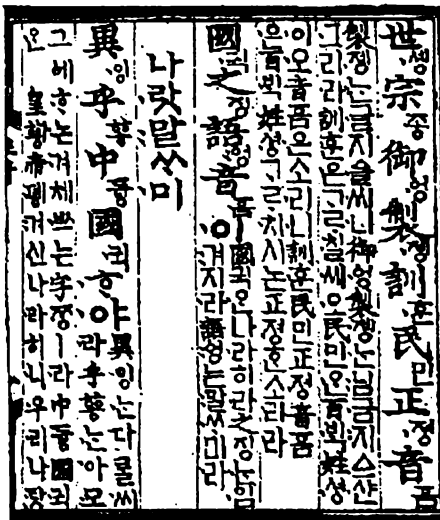 世솅宗종御ᅌᅥᆼ製졩訓훈民민正져ᇰ音ᅙᅳᆷ
製졩는글지ᅀᅳᆯ씨니御ᅌᅥᆼ製졩는님금지ᅀᅳ샨
그리라訓훈은ᄀᆞᄅᆞ칠씨오民민ᄋᆞᆫ百ᄇᆡᆨ姓셩
이오音ᅙᅳᆷ은소리니訓훈民민正져ᇰ音ᅙᅳᆷ
은百ᄇᆡᆨ姓셩ᄀᆞᄅᆞ치시논正져ᇰᄒᆞᆫ소리라
國귁之징語ᅌᅥᆼ音ᅙᅳᆷ이國귁ᄋᆞᆫ나라히라之징는입
겨지라語ᅌᅥᆼ는말ᄊᆞ미라
나랏말ᄊᆞ미
異잉乎ᅘᅩᆼ中듀ᇰ國귁ᄒᆞ야異잉는다ᄅᆞᆯ씨
라乎ᅘᅩᆼ는아모
그ᅌᅦᄒᆞ논겨체ᄡᅳ는字ᄍᆞᆼㅣ라中듀ᇰ國귁
ᄋᆞᆫ皇ᅘᅪᇰ帝뎽겨신나라히니우리나랏